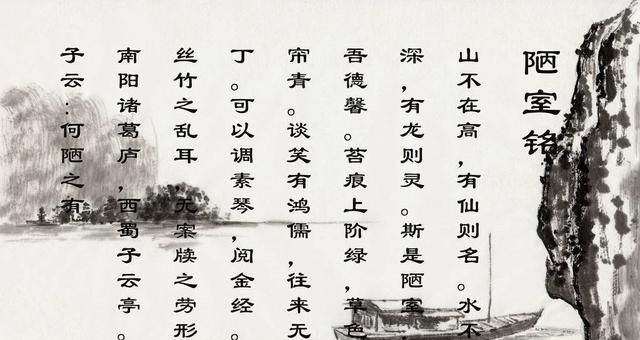 陋室铭
山不在高，有仙则名。水不
深，有龙则灵。斯是陋室，
吾德馨。苔痕上阶绿，草色
帘青。谈笑有鸿儒，往来无
丁。可以调素琴，阅金经。
丝竹之乱耳 无案牍之劳形
南阳诸葛庐，西蜀子云亭。
子云：何陋之有